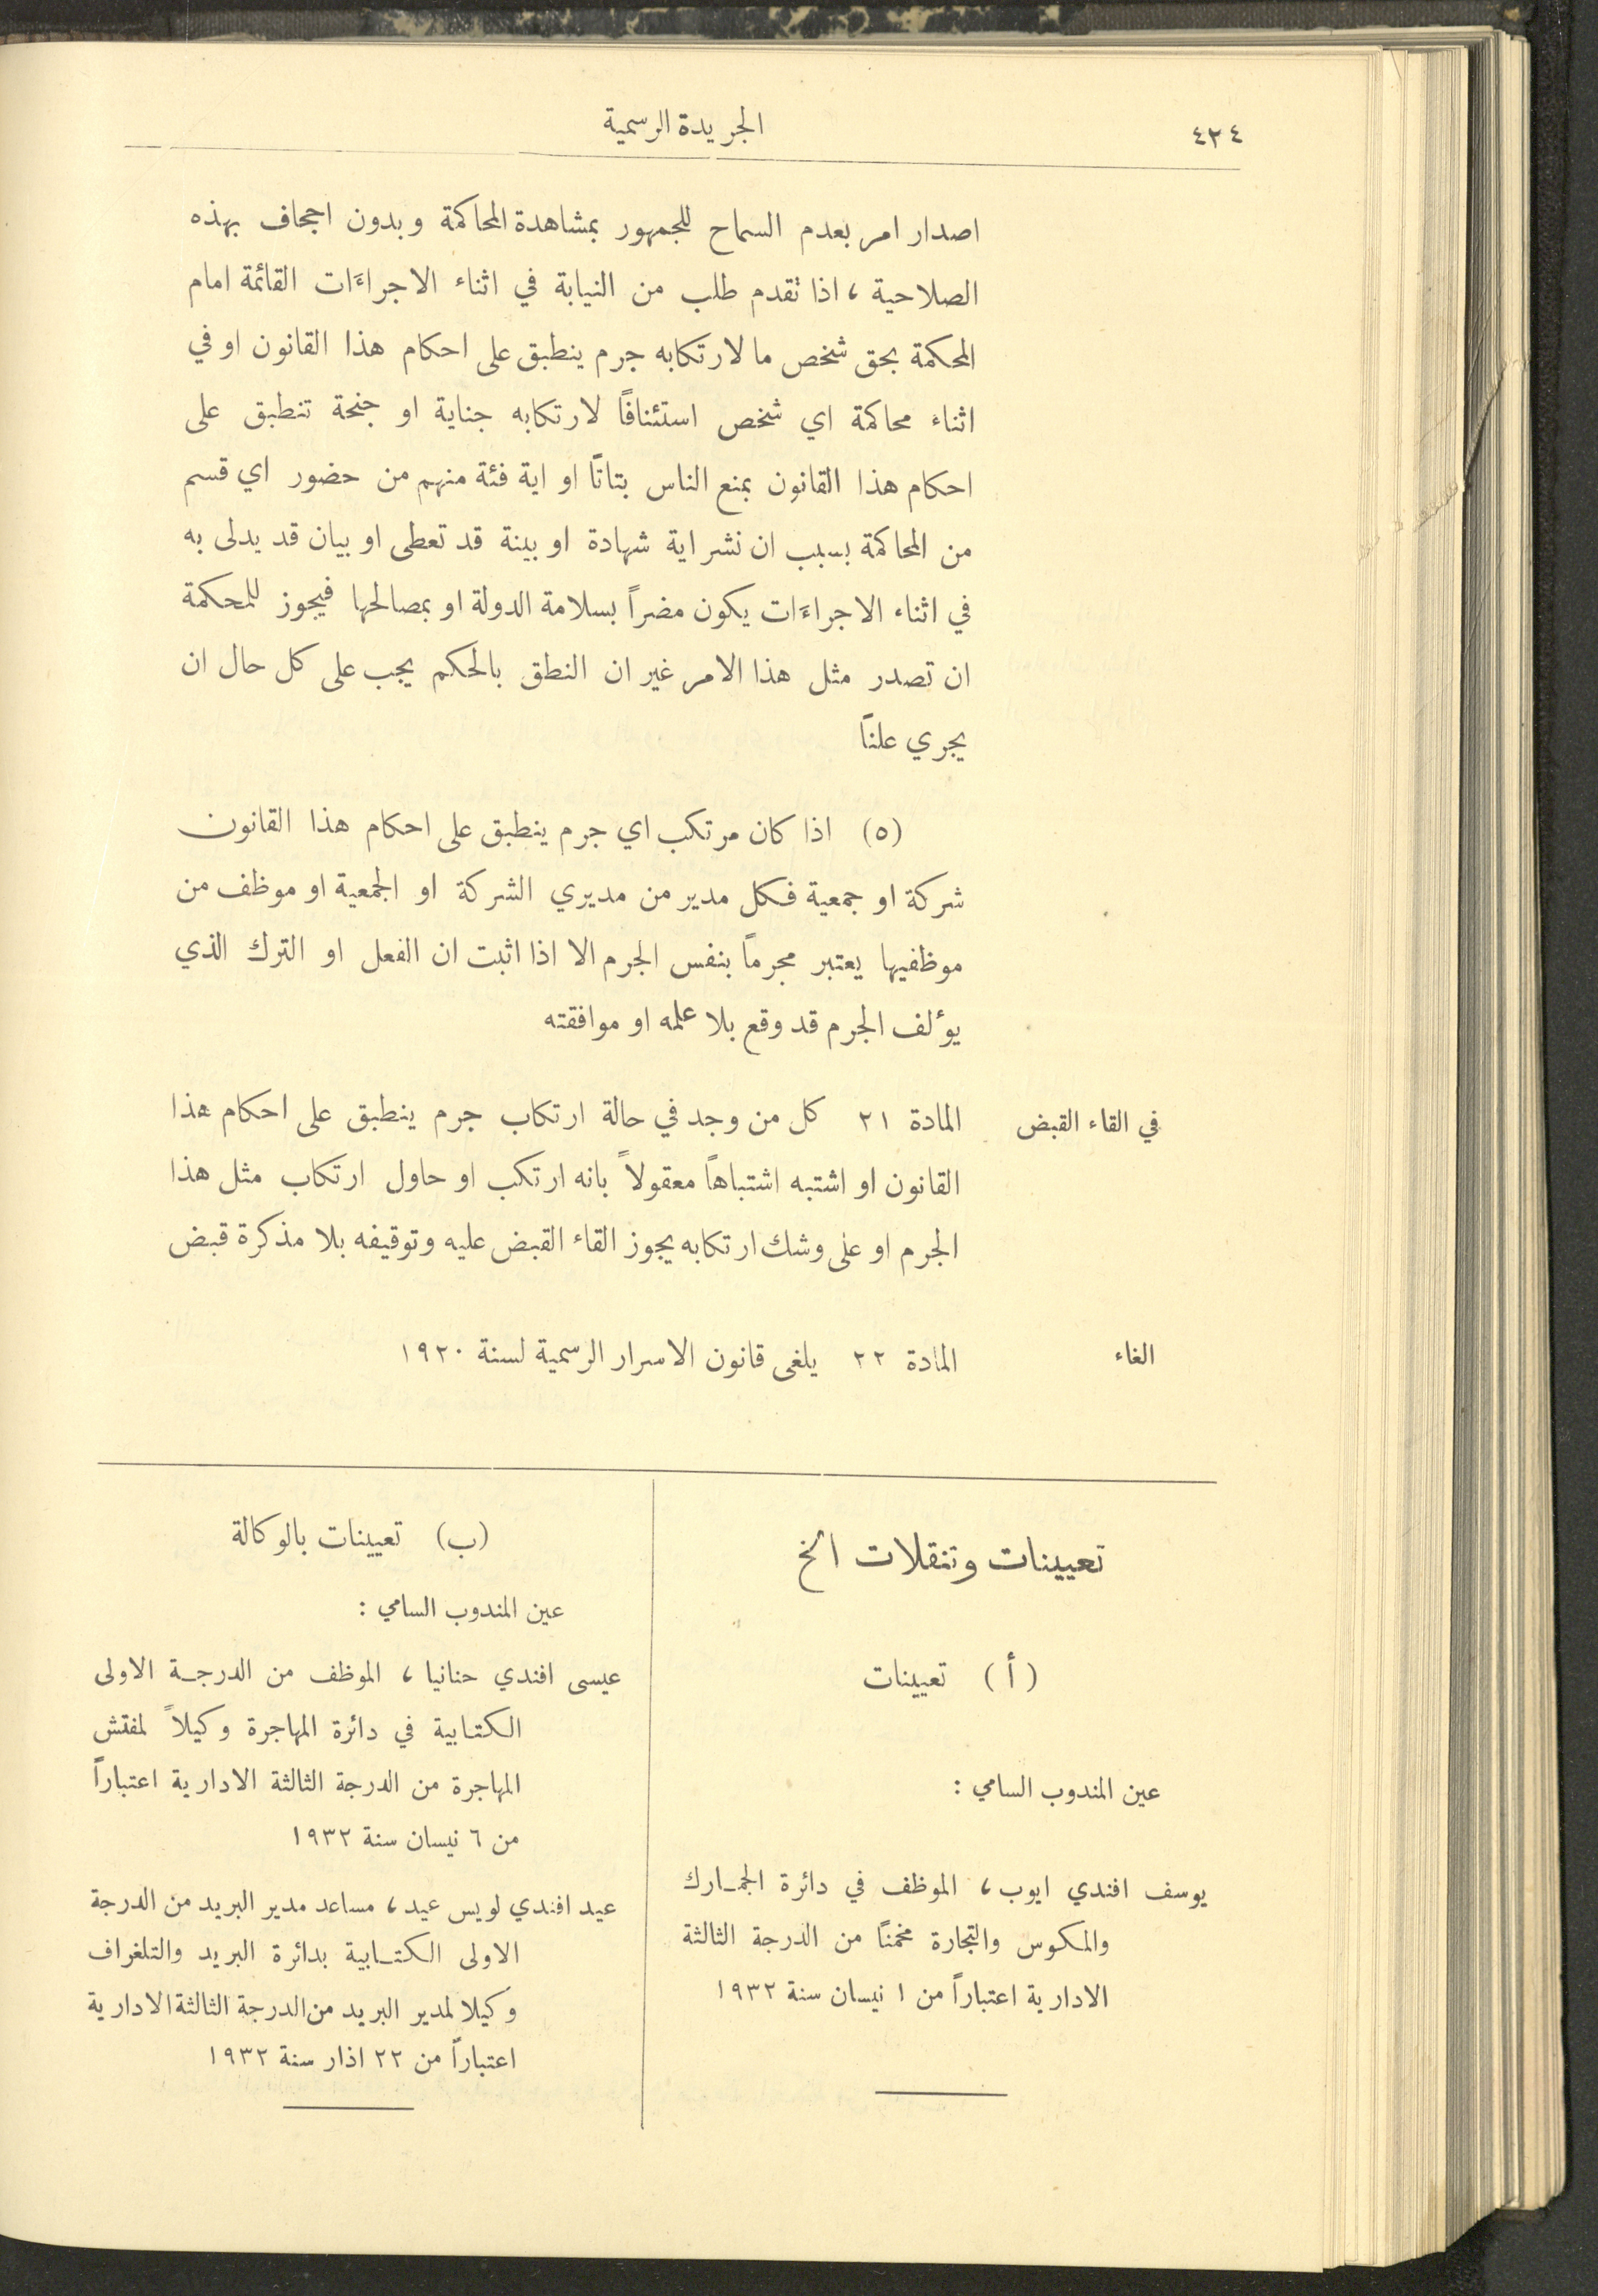 ٤٢٤
الجريدة الرسمية
اصدار امر بعدم السماح للجمهور بمشاهدة المحاكمة وبدون اجحاف بهذه
الصلاحية ، اذا تقدم طلب من النيابة في اثناء الاجراءَات القائمة امام
المحكمة بحق شخص ما لارتكابه جرم ينطبق على احكام هذا القانون او في
اثناء محاكمة اي شخص استئنافاً لارتكابه جناية او جنحة تنطبق على
احكام هذا القانون بمنع الناس بتاتاً او اية فئة منهم من حضور اي قسم
من المحاكمة بسبب ان نشر اية شهادة او بينة قد تعطى او بيان قد يدلى به
في اثناء الاجراءَات يكون مضراً بسلامة الدولة او بمصالحها فيجوز للمحكمة
ان تصدر مثل هذا الامر غير ان النطق بالحكم يجب على كل حال ان
يجري علناً
(٥) اذا كان مرتكب اي جرم ينطبق على احكام هذا القانون
شركة او جمعية فكل مدير من مديري الشركة او الجمعية او موظف من
موظفيها يعتبر مجرماً بنفس الجرم الا اذا اثبت ان الفعل او الترك الذي
يؤلف الجرم قد وقع بلا علمه او موافقته
في القاء القبض
المادة ٢١ كل من وجد في حالة ارتكاب جرم ينطبق على احكام هذا
القانون او اشتبه اشتباهاً معقولاً بانه ارتكب او حاول ارتكاب مثل هذا
الجرم او على وشك ارتكابه يجوز القاء القبض عليه وتوقيفه بلا مذكرة قبض
الغاء
المادة ٢٢ يلغى قانون الاسرار الرسمية لسنة ١٩٢٠
تعيينات وتنقلات الخ
(أ) تعيينات
عين المندوب السامي :
يوسف افندي ايوب ، الموظف في دائرة الجمارك
والمكوس والتجارة مخمناً من الدرجة الثالثة
الادارية اعتباراً من ١ نيسان سنة ١٩٣٢
(ب) تعيينات بالوكالة
عين المندوب السامي :
عيسى افندي حنانيا ، الموظف من الدرجة الاولى
الكتابية في دائرة المهاجرة وكيلاً لمفتش
المهاجرة من الدرجة الثالثة الادارية اعتباراً
من ٦ نيسان سنة ١٩٣٢
عيد افندي لويس عيد ، مساعد مدير البريد من الدرجة
الاولى الكتابية بدائرة البريد والتلغراف
وكيلا لمدير البريد من الدرجة الثالثة الادارية
اعتباراً من ٢٢ اذار سنة ١٩٣٢